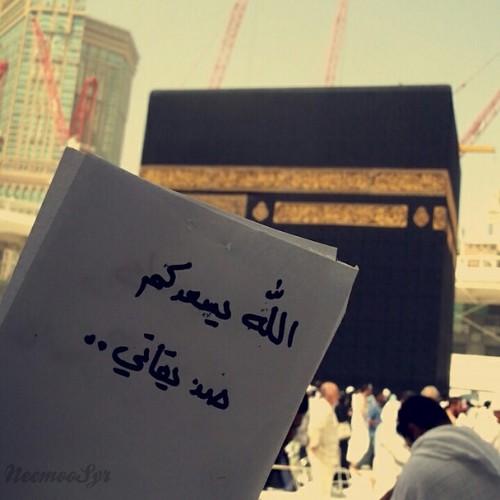 الله يسعدكم
صديقاتي..
NeemooSyr